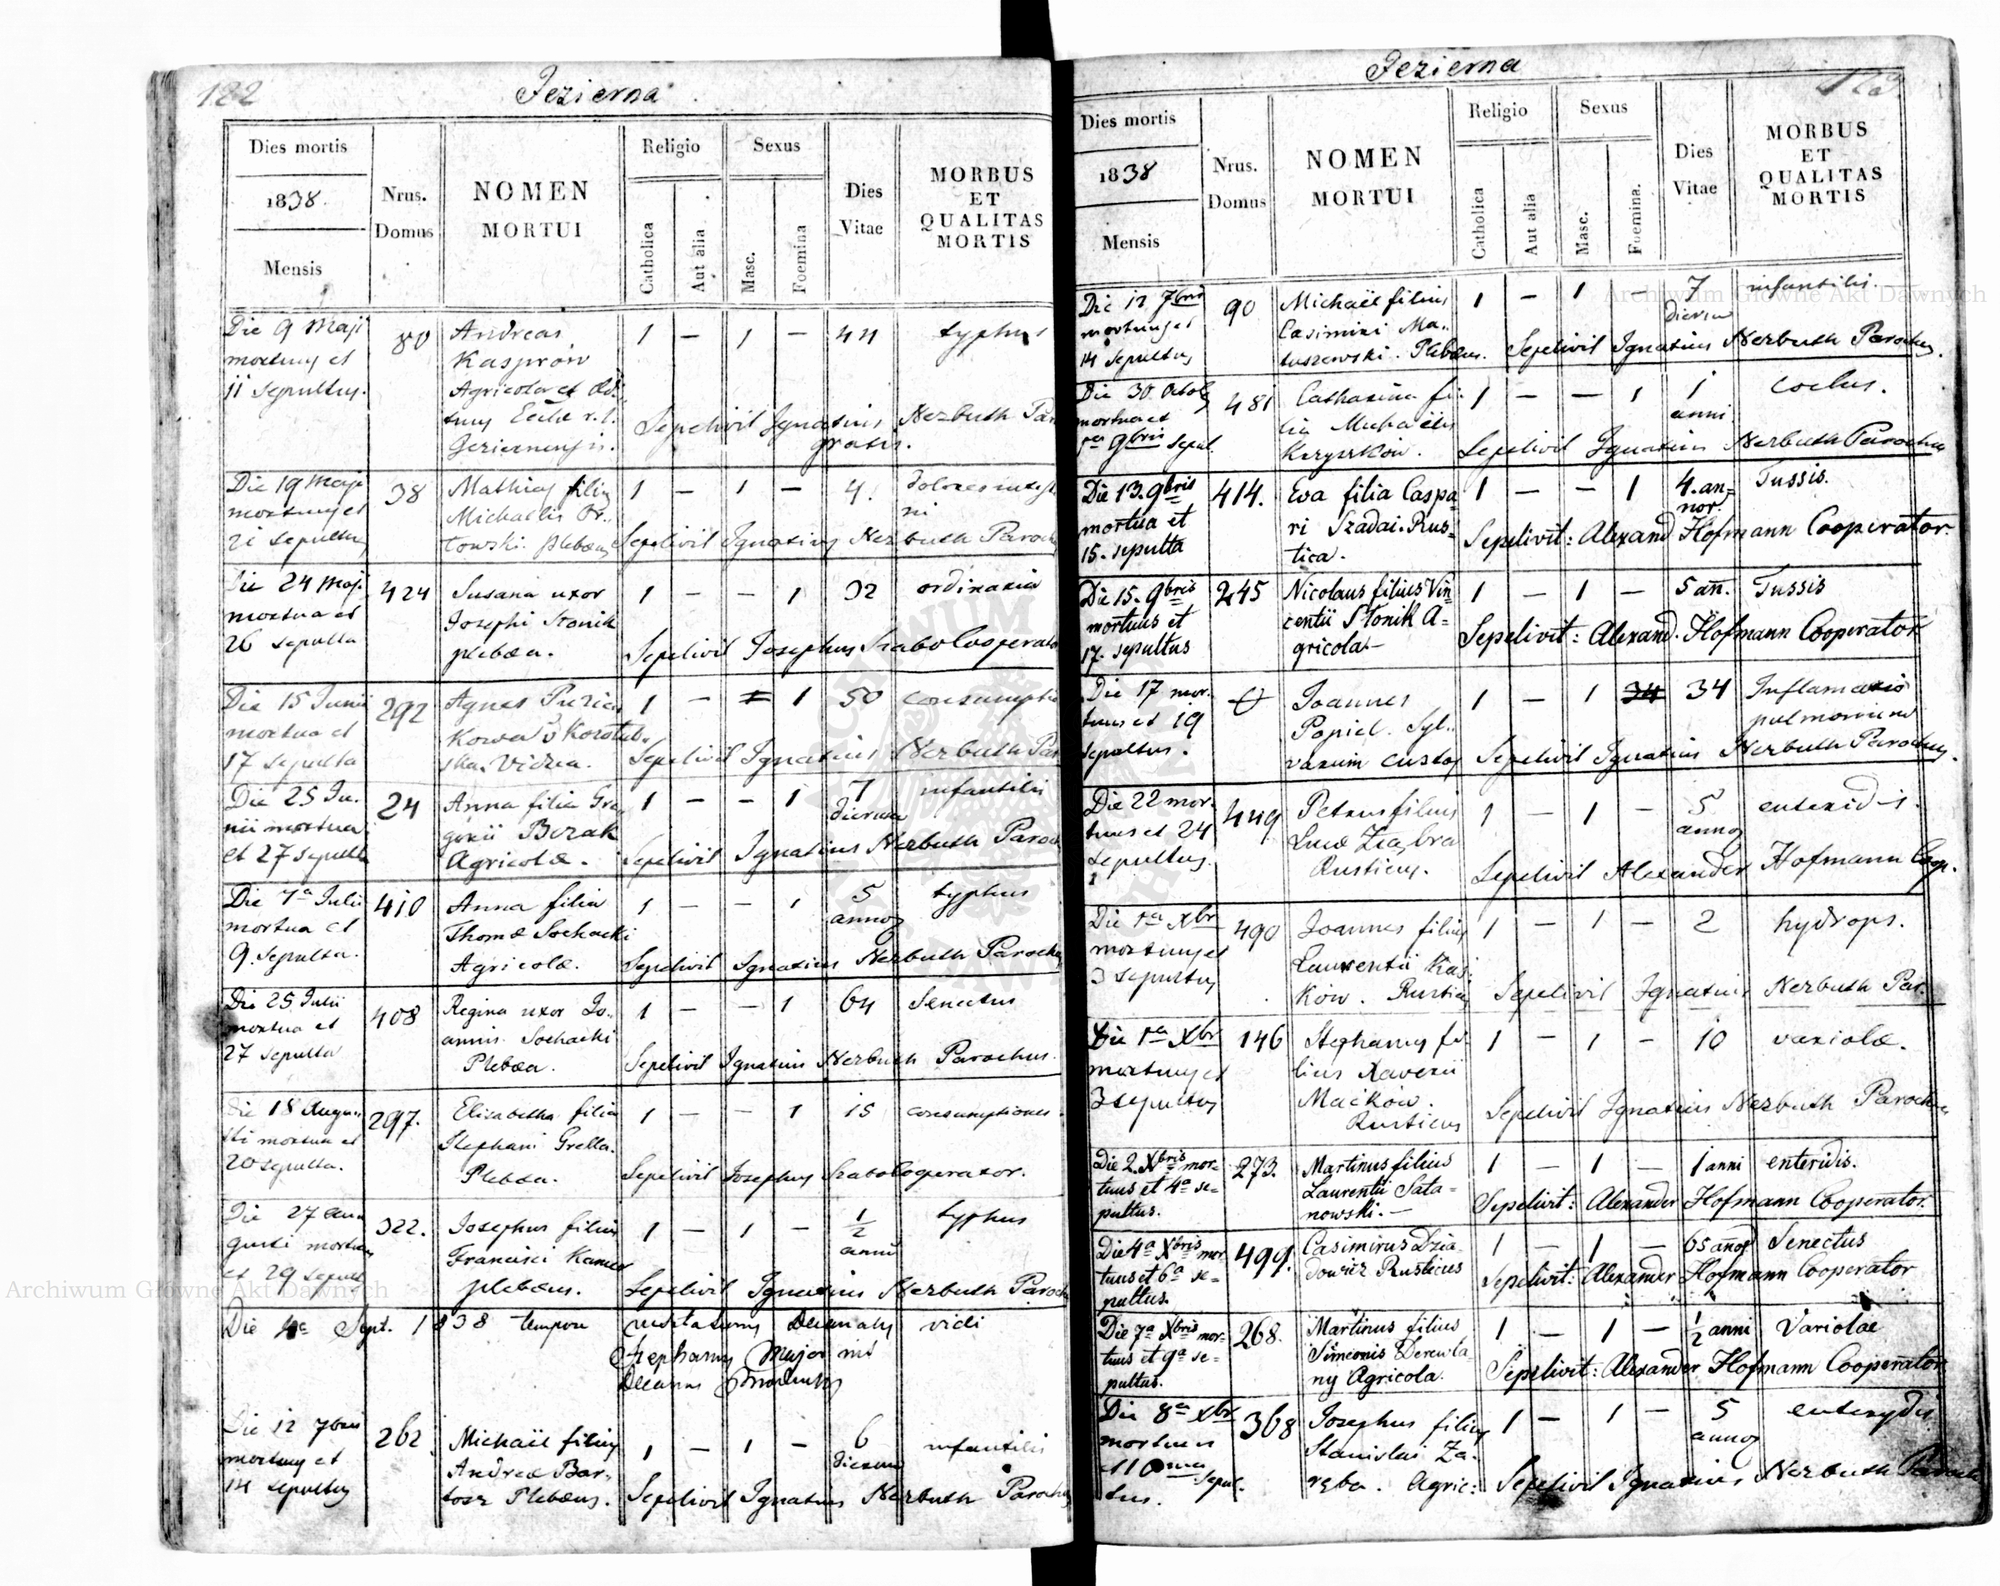 122
Jezierna
Dies mortis
1838.
Mensis
Nrus.
Domus
NOMEN
MORTUI
Religio
Catholica
Aut alia
Sexus
Masc.
Foemina
Dies
Vitae
MORBUS
ET
QUALITAS
MORTIS
Die 9 Maji 80 Andreas 1 – 1 – 44 typhus
mortuus et Kasprow
11 sepultus. Agricola et
Sepelivit Ignatius Nerbuth Par
gratis.
Die 19 Maji 38 Mathias filius 1 – 1 – 4.
mortuus et Michaelis
21 sepultus plebaeus Sepelivit Ignatius Nerbuth Parochus
Die 24 Maji 424 Susana uxor 1 – – 1 32 ordinaria
mortua et Josephi Stonik
26 sepulta plebaea. Sepelivit Josephus Szabo Cooperator
Die 15 Junii 292 Agnes 1 – 1 50 consumptio
mortua et
17 sepulta Vidua. Sepelivit Ignatius Nerbuth Par
Die 25 Ju- 24 Anna filia Gre- 1 – – 1 7 infantilis
nii mortua gorii Bzrak dierum
et 27 sepulta Agricolae. Sepelivit Ignatius Nerbuth Paroch
Die 7a Julii 410 Anna filia 1 – – 1 5 typhus
mortua et Thomae Sochacki annor
9. sepulta. Agricolae. Sepelivit Ignatius Nerbuth Parochus
Die 25 Julii 408 Regina uxor Jo- 1 – – 1 64 Senectus
mortua et annis Sochacki
27 sepulta Plebaea. Sepelivit Ignatius Nerbuth Parochus.
Die 18 Augu- 297. Elisabetha filia 1 – – 1 15 consumptiones
sti mortua et Stephani Grella.
20 sepulta. Plebaea. Sepelivit Josephus Szabo Cooperator.
Die 27 Au 322. Josephus filius 1 – 1 – 1/2 typhus
gusti mortuus Francisci anni
et 29 sepult plebaeus. Sepelivit Ignatius Nerbuth Paroch
Die 4a Sept. 1838 tempore visitationis Decanalis vidi
Stephanus
Decanus
Die 12 7bris 262. Michaël filius 1 – 1 – 6 infantilis
mortuus et Andreae Bar- dierum
14 sepultus tosz Plebaeus. Sepelivit Ignatius Nerbuth Parochus
Jezierna
123
Dies mortis
1838
Mensis
Nrus.
Domus
NOMEN
MORTUI
Religio
Catholica
Aut alia
Sexus
Masc.
Foemina.
Dies
Vitae
MORBUS
ET
QUALITAS
MORTIS
Die 12 7bris 90 Michaël filius 1 – 1 – 7 infantilis.
mortuus et Casimiri Ma- dierum
14 sepultus tuszewski. Plebaeus. Sepelivit Ignatius Nerbuth Parochus.
Die 30 Octob 481 Catharina fi- 1 – – 1 1
mortua et lia Michaëlis anni
1a 9bris sepul. Krzyszkow. Sepelivit Ignatius Nerbuth Parochus
Die 13. 9bris 414. Eva filia Caspa 1 – – 1 4. an= Tussis.
mortua et ri Szadai. Rus= nor.
15. sepulta tica. Sepelivit: Alexand Hofmann Cooperator.
Die 15. 9bris 245 Nicolaus filius Vin= 1 – 1 – 5 an. Tussis
mortuus et centii Słonik A=
17. sepultus gricola.– Sepelivit: Alexand. Hofmann Cooperator
Die 17 mor- 0 Joannes 1 – 1 34 34 Inflamatio
tuus et 19 Popiel. Syl- pulmonum
sepultus. varum custos Sepelivit Ignatius Nerbuth Parochus.
Die 22 mor- 449 Petrus filius 1 – 1 – 5
tuus et 24 Lucae Ziębra annor
sepultus. Rusticus. Sepelivit Alexander Hofmann Coop.
Die 1a Xbr 490 Joannes filius 1 – 1 – 2 hydrops.
mortuus et Laurentii Kaś-
3 sepultus kow. Rustici Sepelivit Ignatius Nerbuth Par.
Die 1a Xbr 146 Stephanus fi- 1 – 1 – 10 variolae.
mortuus et lius Xaverii
3 sepultus Maćkow.
Rusticus Sepelivit Ignatius Nerbuth Parochus
Die 2. Xbris mor= 273. Martinus filius 1 – 1 – 1 anni enteridis.
tuus et 4a se= Laurentii Sata=
pultus. nowski.– Sepelivit: Alexander Hofmann Cooperator.
Die 4a Xbris mor 499. Casimirus Dzia= 1 – 1 – 65 anor. Senectus
tuus et 6a se= dowicz Rusticus Sepelivit: Alexander Hofmann Cooperator
pultus.
Die 7a Xbris mor= 268. Martinus filius 1 – 1 – 1/2 anni Variolae
tuus et 9a se= Simeonis Derewla-
pultus. ny Agricola. Sepelivit: Alexander Hofmann Cooperator
Die 8a Xbr 368 Josephus filius 1 – 1 – 5 enterydis
mortuus Stanislai Za- annor
et 10ma sepul- ręba. Agric: Sepelivit Ignatius Nerbuth Paroch
tus.
Archiwum Główne Akt Dawnych
Archiwum Główne Akt Dawnych